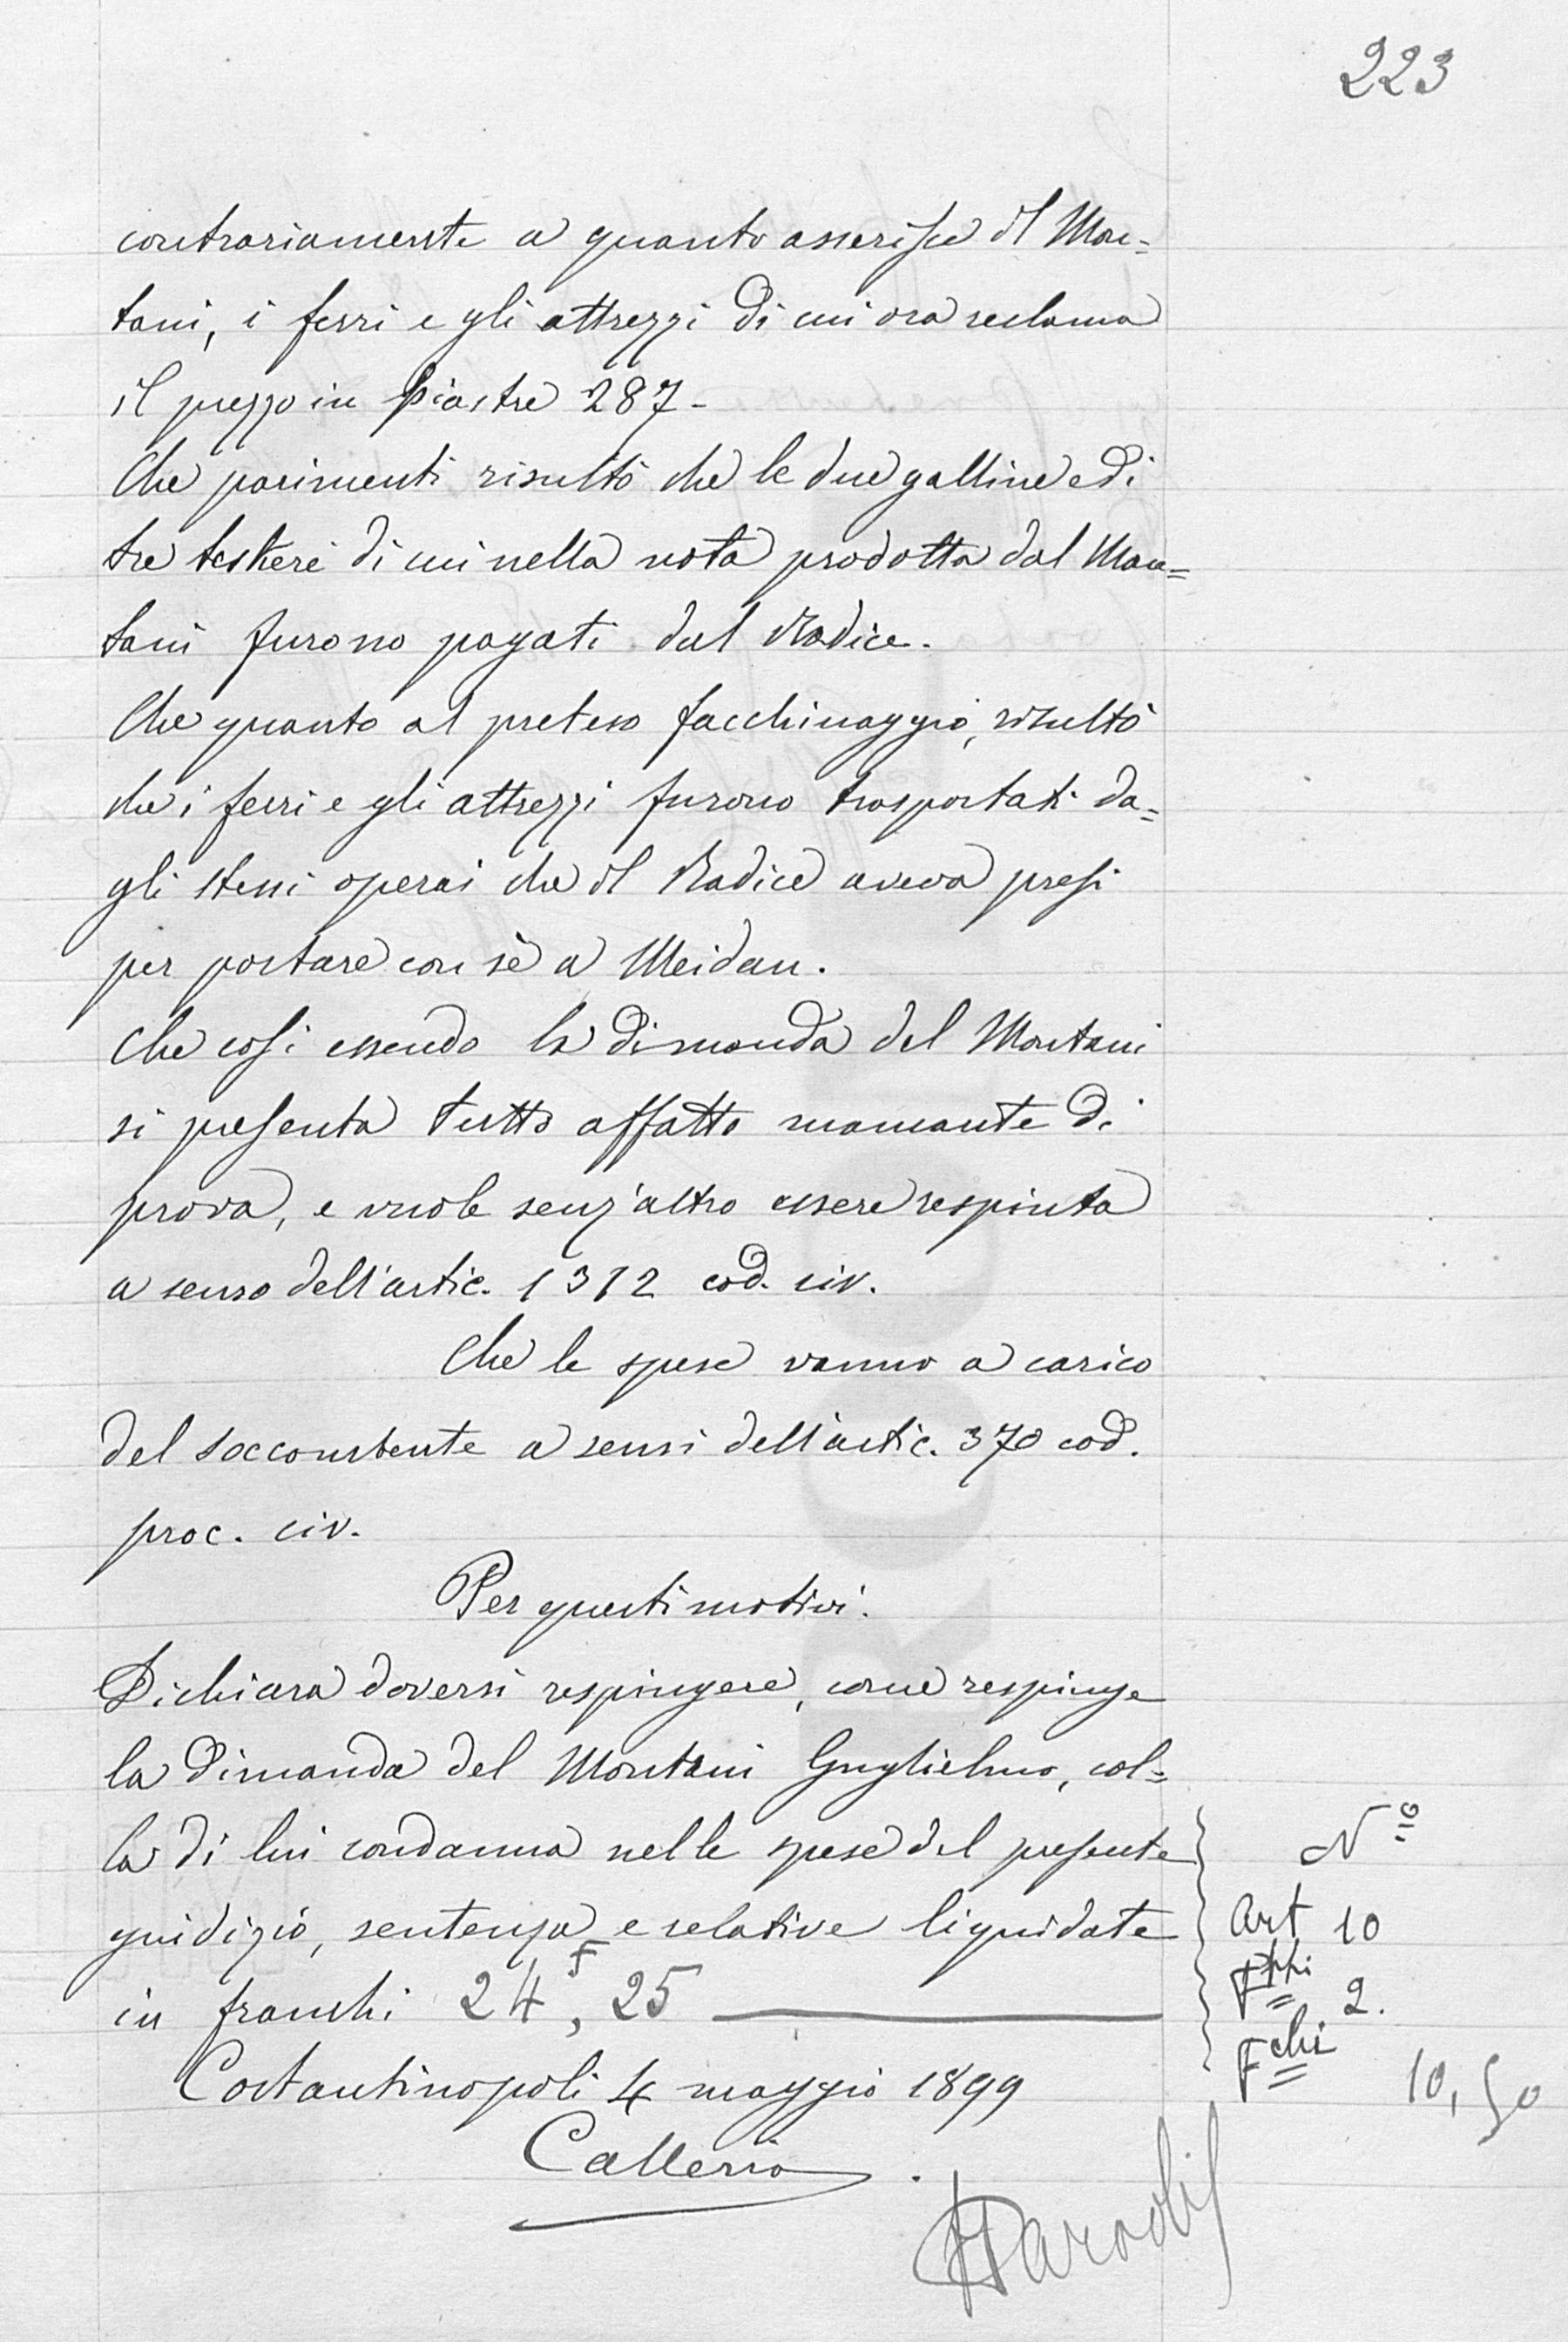 223
contrariamente a quanto asserisce il Mon=
tani, i ferri e gli attrezzi di cui ora reclama
il prezzo in piastre 287-
Che parimenti risultò che le due galline ed i
tre teskerè di cui nella nota prodotta dal Mon=
tani furono pagati dal Radice.
Che quanto al preteso facchinaggio, risultò
che i ferri e gli attrezzi furono trasportati da=
gli stessi operai che il Radice aveva presi
per portare con sè a Meidan.
Che così essendo la dimanda del Montani
si presenta tutto affatto mancante di
prova, e vuole senz'altro essere respinta
a senso dell'artic. 1312 cod. civ.
Che le spese vanno a carico
del soccombente a sensi dell'artic. 370 cod.
proc. civ.
Per questi motivi.
Dichiara doversi respingere, come respinge
la dimanda del Montani Guglielmo, col=
la di lui condanna nelle spese del presente
giudizio, sentenza e relative liquidate
in franchi 24F, 25
Costantinopoli 4 maggio 1899
Calleri
Parodi
No
Art 10
2.
Fchi 10,50